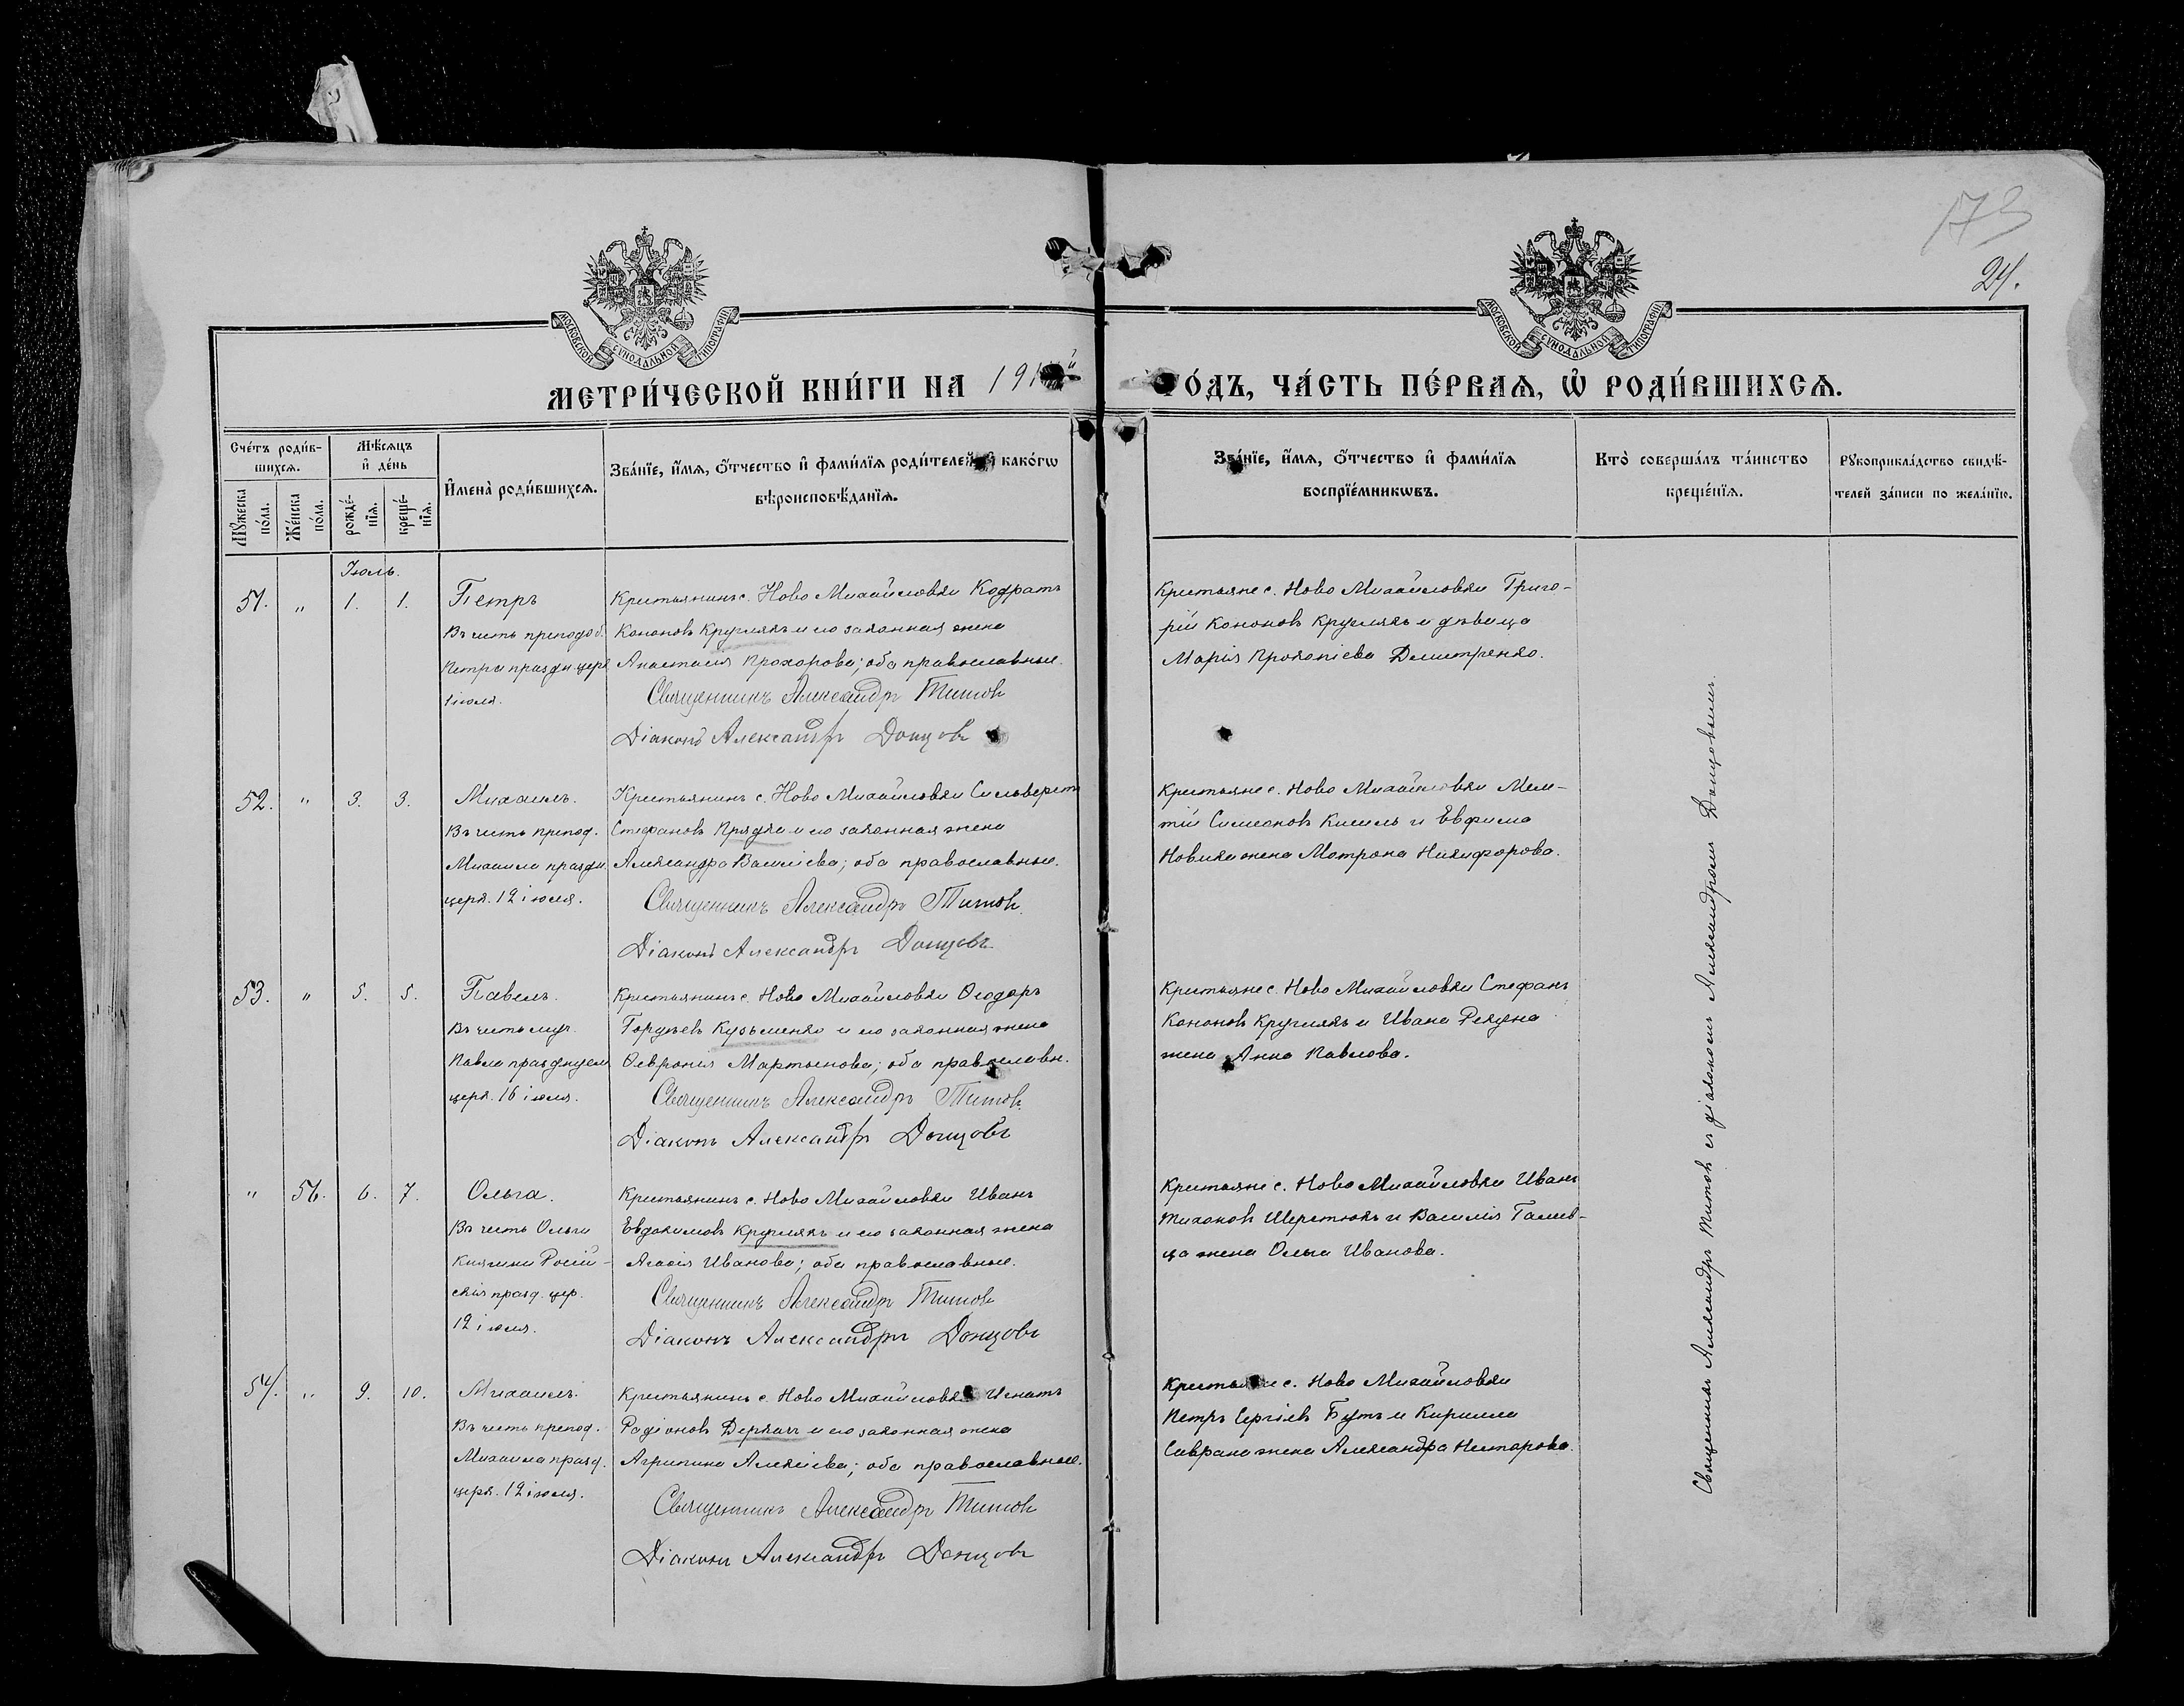 173
24.
МОСКОВСКОЙ СУНОДАЛЬНОЙ ТИПОГРАФІИ
МОСКОВСКОЙ СУНОДАЛЬНОЙ ТИПОГРАФІИ
МЕТРИ́ЧЕСКОЙ КНИ́ГИ НА 191
О́ДЪ, ЧА́СТЬ ПЕ́РВАѦ, Ѡ҆ РОДИ́ВШИХСѦ.
Сче́тъ роди́в-
шихсѧ.
Мѣ́сѧцъ
и҆ де́нь
Мꙋ́жеска по́ла.
Же́нска по́ла.
рожде́-
нїѧ.
креще́-
нїѧ.
И҆мена̀ роди́вшихсѧ.
Зва́нїе, и҆́мѧ, ѻ҆́тчество и҆ фами́лїѧ роди́телей и҆ како́гѡ
вѣроисповѣ́данїѧ.
Зва́нїе, и҆́мѧ, ѻ҆́тчество и҆ фами́лїѧ
воспрїе́мникѡвъ.
Кто̀ соверша́лъ та́инство
креще́нїѧ.
Рꙋкоприкла́дство свидѣ́-
телей за́писи по жела́нїю.
Іюль.
51. " 1. 1. Петръ
Въ честь преподоб.
Петра праздн. церк.
1 іюля.
Крестьянинъ с. Ново Михайловки Кодратъ
Кононовъ Круглякъ и его законная жена
Анастасія Прохорова; оба православные.
Священникъ Александръ Титовъ
Діаконъ Александръ Донцовъ
Крестьяне с. Ново Михайловки Григо-
рій Кононовъ Круглякъ и дѣвица
Марія Прокопіева Дмитренко.
52. " 3. 3. Михаилъ.
Въ честь препод.
Михаила праздн.
церк. 12 іюля.
Крестьянинъ с. Ново Михайловки Сильверстъ
Стефановъ Прядка и его законная жена
Александра Василіева; оба православные.
Священникъ Александръ Титовъ
Діаконъ Александръ Донцовъ
Крестьяне с. Ново Михайловки Меле-
тій Симеоновъ Кисиль и Евфима
Новика жена Мотрона Никифорова.
53. " 5. 5. Павелъ.
Въ честь муч.
Павла празднуем.
церк. 16 іюля.
Крестьянинъ с. Ново Михайловки Ѳеодоръ
Гордѣевъ Кузьменко и его законная жена
Ѳеврония Мартынова; оба православн.
Священникъ Александръ Титовъ
Діаконъ Александръ Донцовъ
Крестьяне с. Ново Михайловки Стефанъ
Кононовъ Круглякъ и Ивана Рекуна
жена Анна Павлова.
" 56. 6. 7. Ольга.
Въ честь Ольги
Княгини Россій-
скія празд. цер.
12 іюля.
Крестьянинъ с. Ново Михайловки Иванъ
Евдокимовъ Круглякъ и его законная жена
Агафія Иванова; оба православные.
Священникъ Александръ Титовъ
Діаконъ Александръ Донцовъ
Крестьяне с. Ново Михайловки Иванъ
Тихоновъ Шереткокъ и Василія Галив-
ца жена Ольга Иванова.
54. " 9. 10. Михаилъ.
Въ честь препод.
Михаила празд.
церк. 12 іюля.
Крестьянинъ с. Ново Михайловки Игнатъ
Радіоновъ Деркачъ и его законная жена
Агрипина Алексіева; оба православные.
Священникъ Александръ Титовъ
Діаконъ Александръ Донцовъ
Крестьяне с. Ново Михайловки
Петръ Сергіевъ Бутъ и Кирилла
Саврана жена Александра Несторова.
Священникъ Александръ Титовъ съ діакономъ Александромъ Донцовымъ.